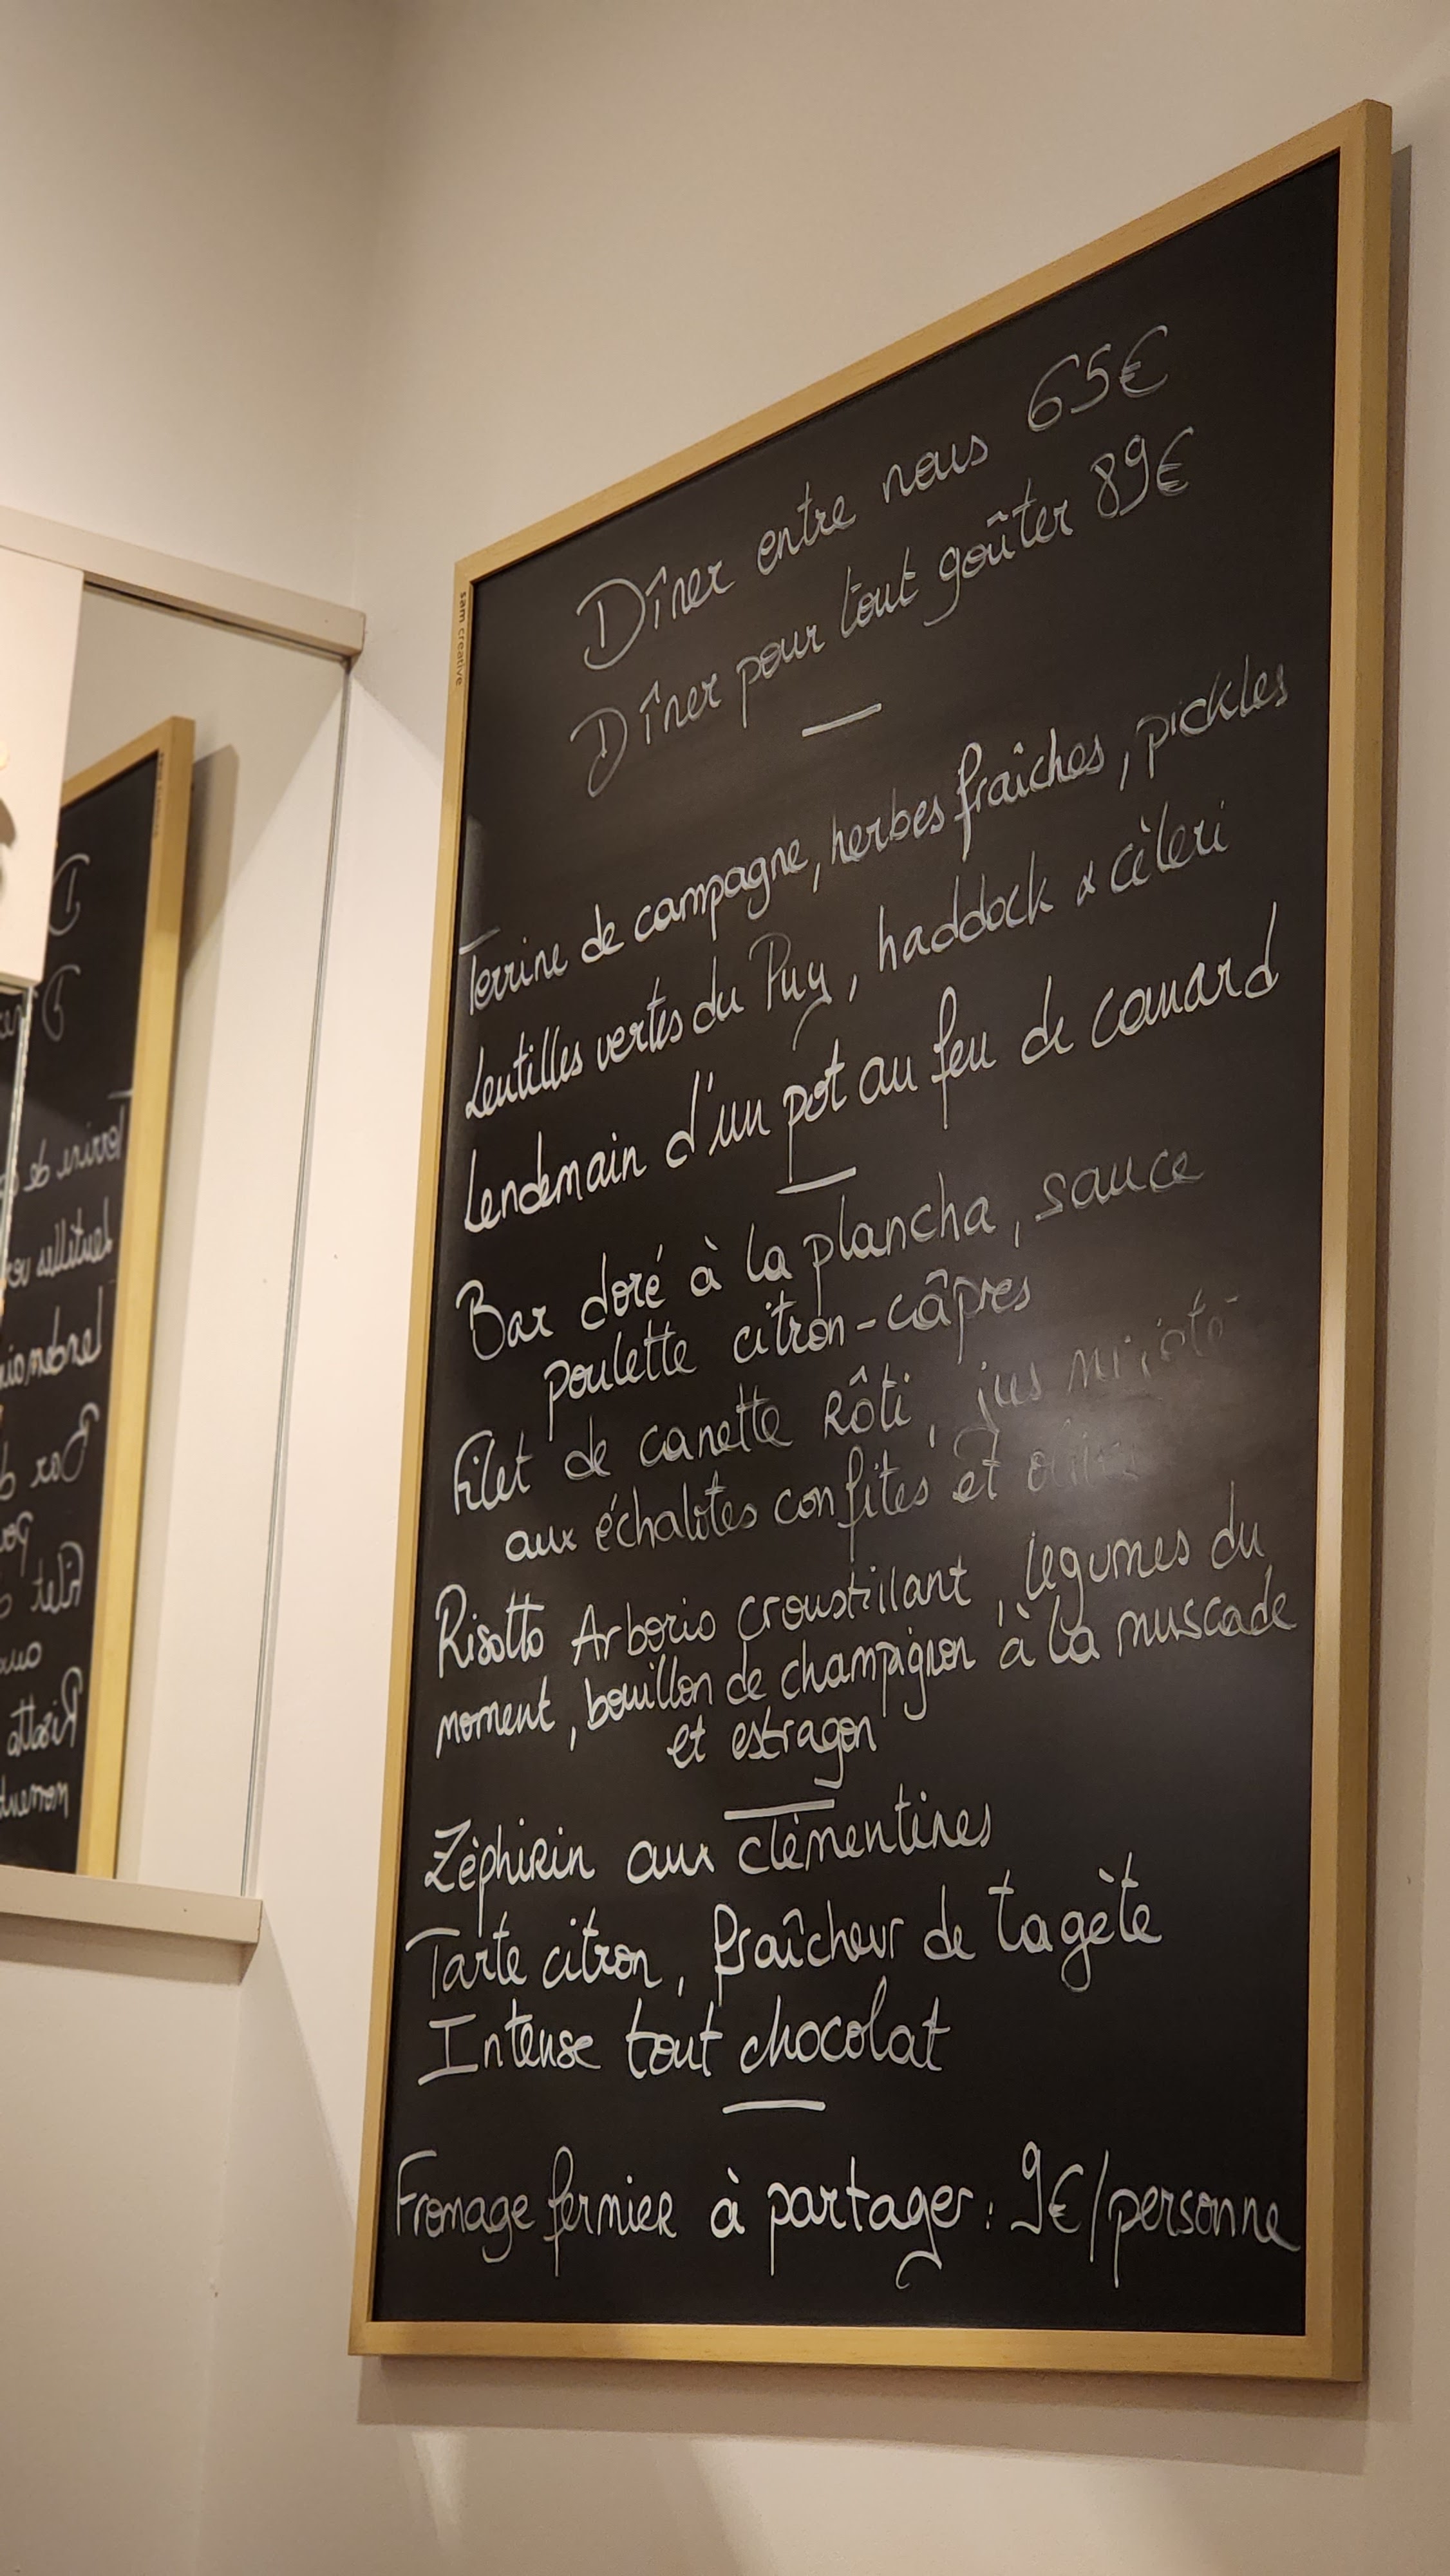 sam creative
Dîner entre nous 65€
Dîner pour tout goûter 89€
Terrine de campagne, herbes fraîches, pickles
Lentilles vertes du Puy, haddock & cèleri
Lendemain d'un pot au feu de canard
Bar doré à la plancha, sauce
poulette citron-câpres
Filet de canette Rôti, jus
aux échalotes confites et
Risotto Arborio croustillant, légumes du
moment, bouillon de champignon à la muscade
et estragon
Zéphirin aux clémentines
Tarte citron, fraîcheur de tagète
Intense tout chocolat
Fromage fermier à partager : 9€/personne